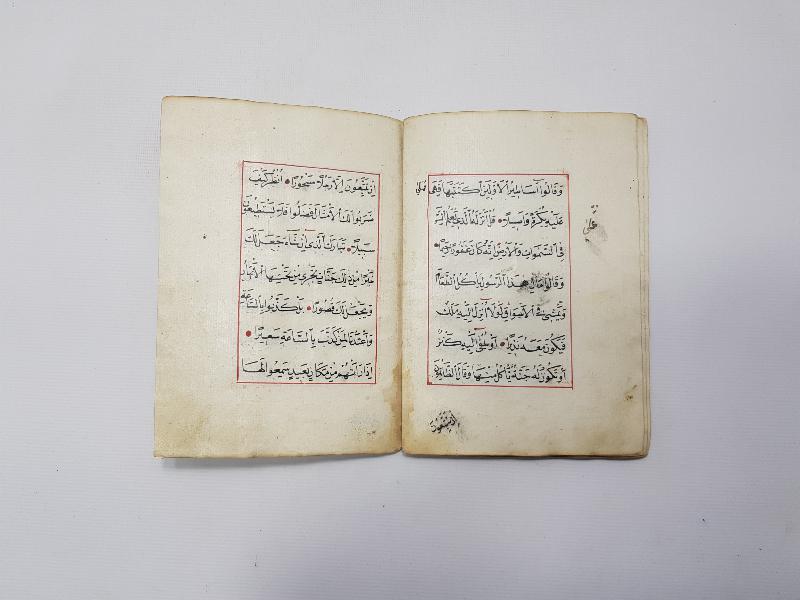 وَقَالُوا اَسَاطِيرُ الْاَوَّلِينَ اكْتَتَبَهَا فَهِىَ تُمْلٰى
عَلَيْهِ بُكْرَةً وَاَصِيلًا • قُلْ اَنْزَلَهُ الَّذِى يَعْلَمُ السِّرَّ
فِى السَّمٰوَاتِ وَالْاَرْضِ اِنَّهُ كَانَ غَفُورًا رَحِيمًا •
وَقَالُوا مَالِ هٰذَا الرَّسُولِ يَاْكُلُ الطَّعَامَ
وَيَمْشِى فِى الْاَسْوَاقِ لَوْلَا اُنْزِلَ اِلَيْهِ مَلَكٌ
فَيَكُونَ مَعَهُ نَذِيرًا • اَوْ يُلْقٰى اِلَيْهِ كَنْزٌ
اَوْ تَكُونُ لَهُ جَنَّةٌ يَاْكُلُ مِنْهَا وَقَالَ الظَّالِمُونَ
اِنْ تَتَّبِعُونَ
اِنْ تَتَّبِعُونَ اِلَّا رَجُلًا مَسْحُورًا • اُنْظُرْ كَيْفَ
ضَرَبُوا لَكَ الْاَمْثَالَ فَضَلُّوا فَلَا يَسْتَطِيعُونَ
سَبِيلًا • تَبَارَكَ الَّذِى اِنْ شَاءَ جَعَلَ لَكَ
خَيْرًا مِنْ ذٰلِكَ جَنَّاتٍ تَجْرِى مِنْ تَحْتِهَا الْاَنْهَارُ
وَيَجْعَلْ لَكَ قُصُورًا • بَلْ كَذَّبُوا بِالسَّاعَةِ
وَاَعْتَدْنَا لِمَنْ كَذَّبَ بِالسَّاعَةِ سَعِيرًا •
اِذَا رَاَتْهُمْ مِنْ مَكَانٍ بَعِيدٍ سَمِعُوا لَهَا